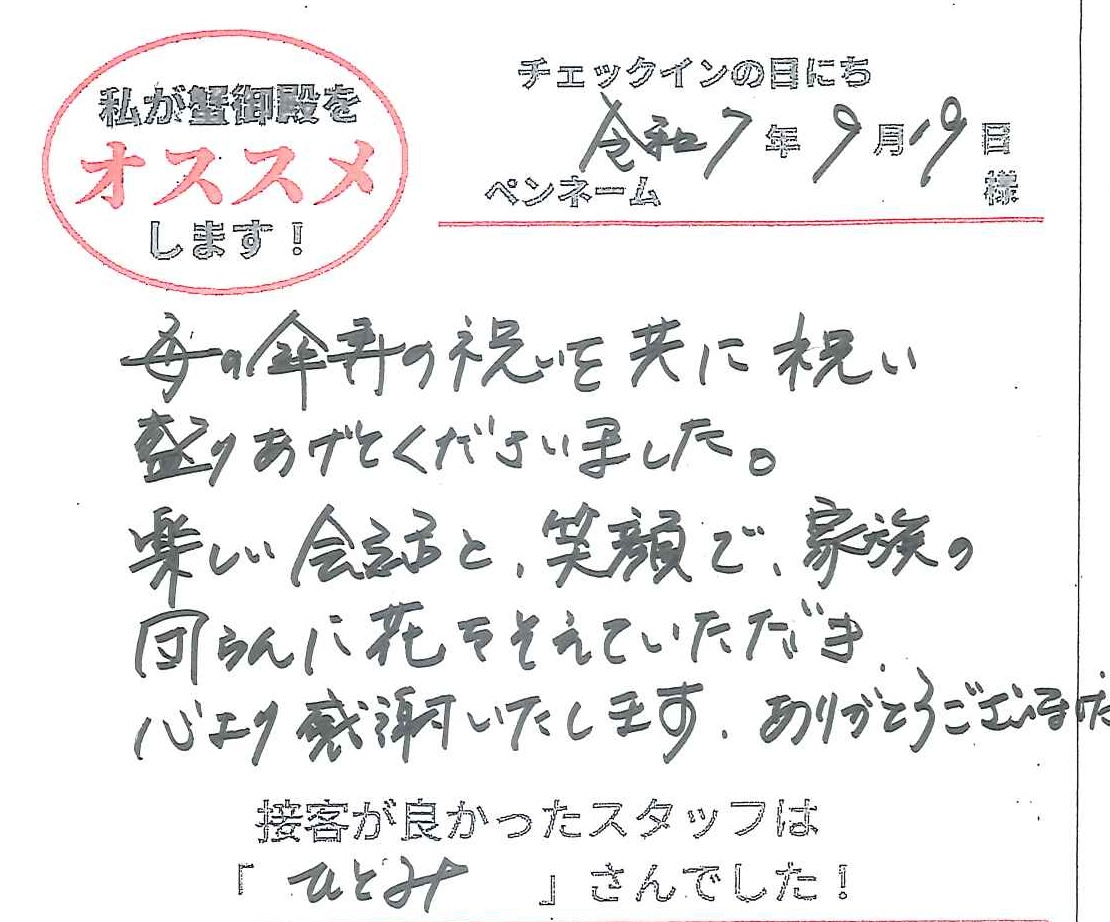 私が蟹御殿を
オススメ
します！
チェックインの日にち
令和7年9月19日
ペンネーム 様
母の傘寿の祝いを共に祝い
盛りあげてくださいました。
楽しい会話と、笑顔で、家族の
団らんに花をそえていただき、
心より感謝いたします。ありがとうございました
接客が良かったスタッフは
「ひとみ」さんでした！